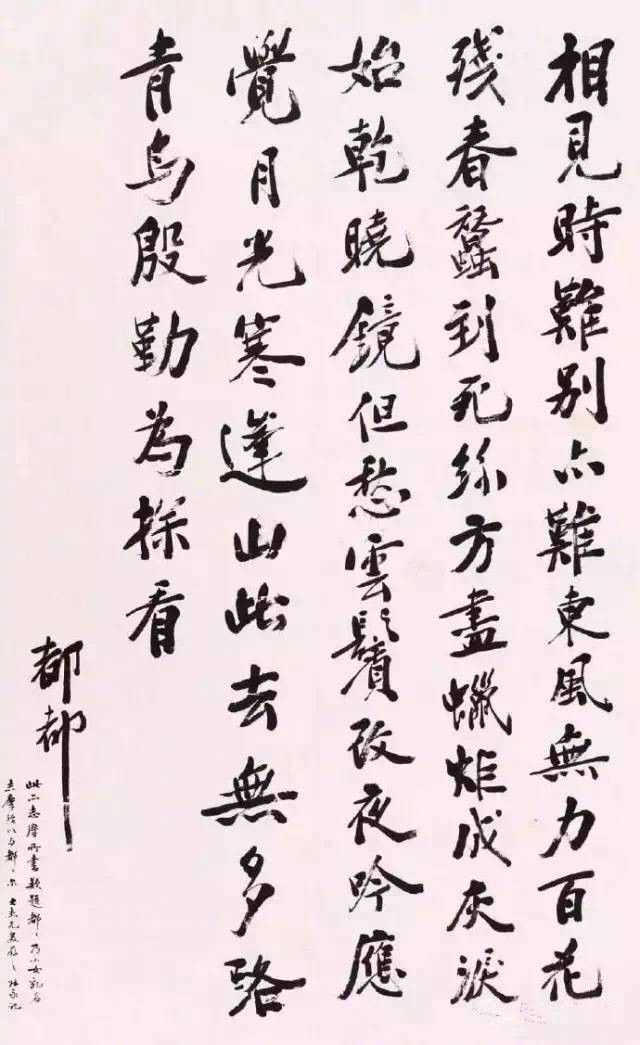 相見時難別亦難東風無力百花
殘春蠶到死絲方盡蠟炬成灰淚
始乾曉鏡但愁雲鬢改夜吟應
覺月光寒蓬山此去無多路
青鳥殷勤為探看
都都
此亦志摩所書款題都〻乃小女乳名
志摩以与都〻尔記